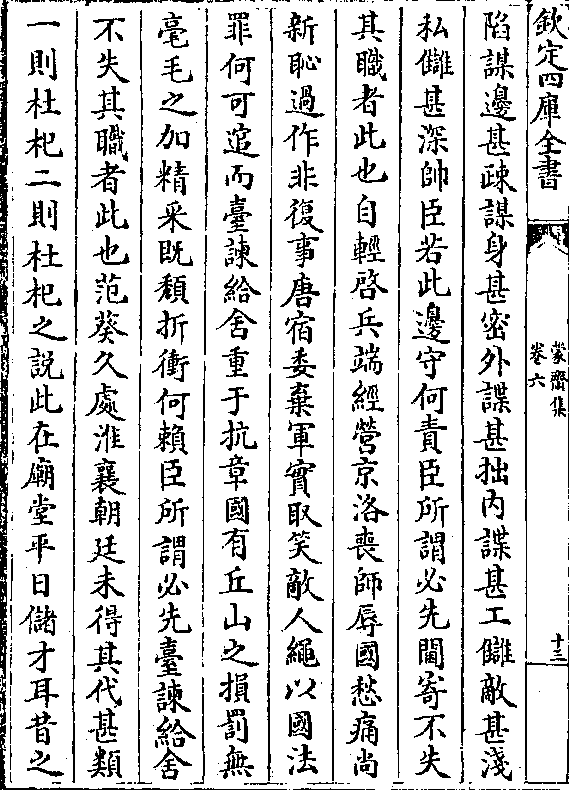 欽定四庫全書
蒙齋集
卷六
十三
陷謀邊甚疎謀身甚密外謀甚拙内謀甚工讎敵甚淺
私讎甚深帥臣若此邊守何責臣所謂必先閫寄不失
其職者此也自輕啓兵端經營京洛喪師辱國愁痛尚
新恥過作非復事唐宿委棄軍實取笑敵人繩以國法
罪何可逭而臺諫給舍重于抗章國有丘山之損罰無
毫毛之加精采既頽折衝何賴臣所謂必先臺諫給舍
不失其職者此也范葵久處淮襄朝廷未得其代甚類
一則杜杞二則杜杞之説此在廟堂平日儲才耳昔之